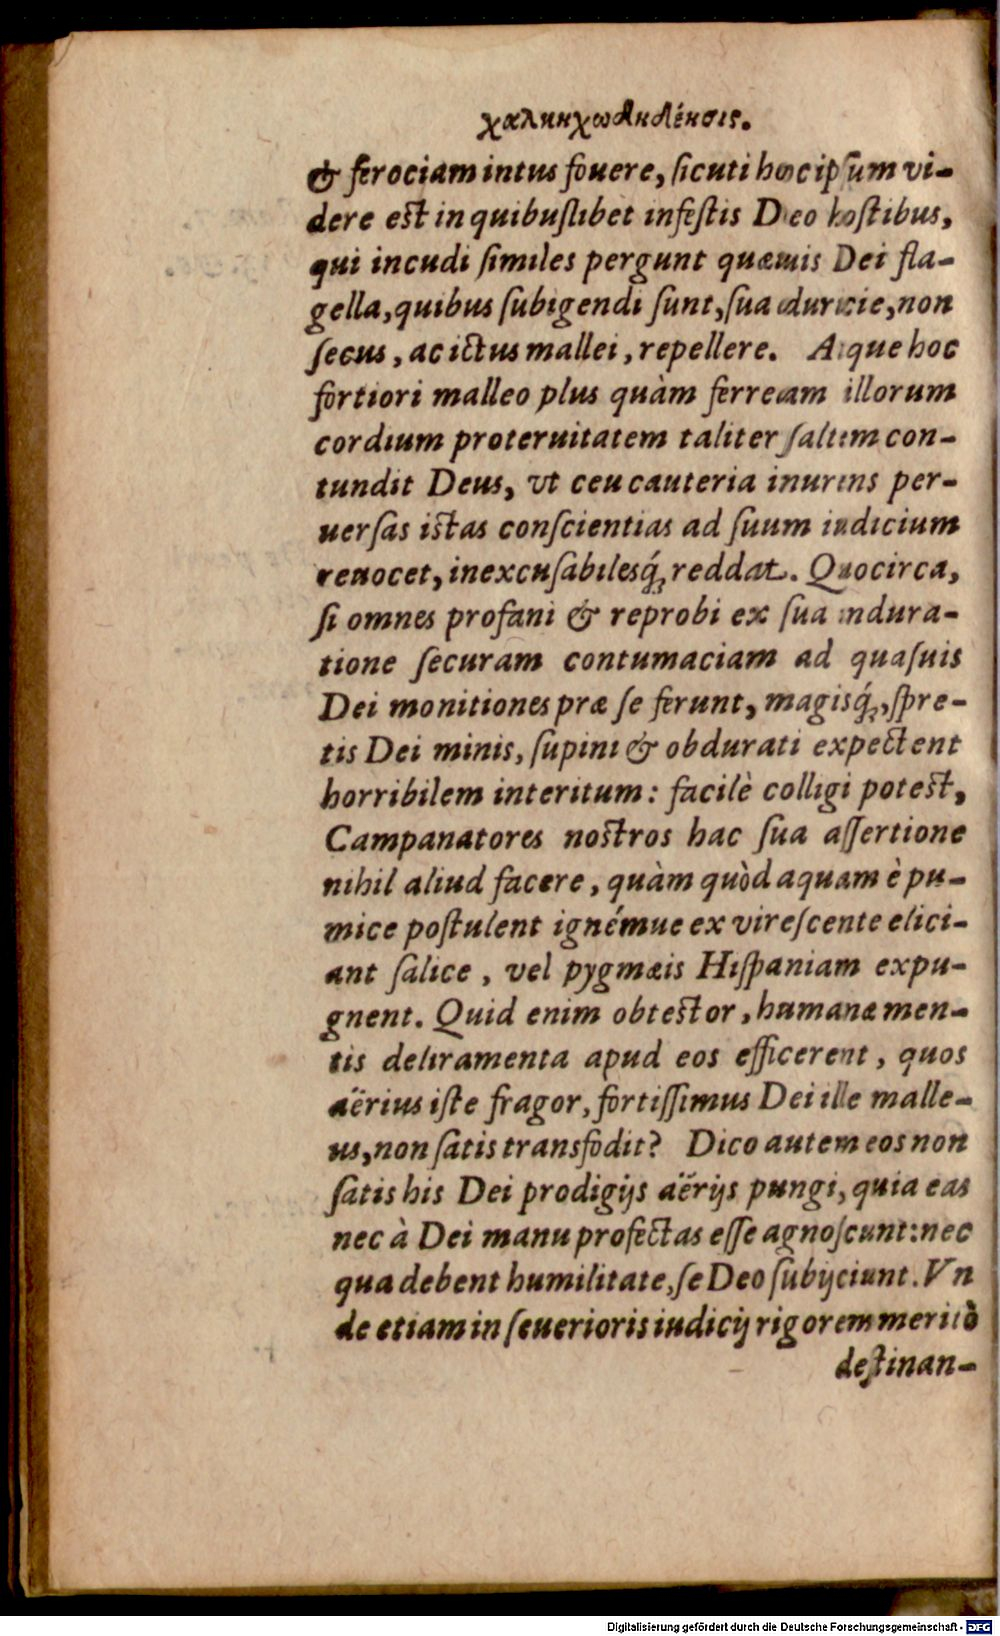 χαληηχωδηδένσις.
& ferociam intus fouere, ſicuti hoc ipſum vi-
dere eſt in quibuſlibet infeſtis Deo hoſtibus,
qui incudi ſimiles pergunt quæuis Dei fla-
gella, quibus ſubigendi ſunt, ſua duricie, non
ſecus, ac ictus mallei, repellere. Atque hoc
fortiori malleo plus quàm ferream illorum
cordium proteruitatem taliter ſaltem con-
tundit Deus, vt ceu cauteria inurens per-
uerſas iſtas conſcientias ad ſuum iudicium
reuocet, inexcuſabilesq́; reddat. Quocirca,
ſi omnes profani & reprobi ex ſua indura-
tione ſecuram contumaciam ad quaſuis
Dei monitiones præ ſe ferunt, magisq́;, ſpre-
tis Dei minis, ſupini & obdurati expectent
horribilem interitum: facilè colligi poteſt,
Campanatores noſtros hac ſua aſſertione
nihil aliud facere, quàm quòd aquam è pu-
mice poſtulent ignémue ex vireſcente elici-
ant ſalice, vel pygmæis Hiſpaniam expu-
gnent. Quid enim obteſtor, humanæ men-
tis deliramenta apud eos efficerent, quos
aërius iſte fragor, fortiſſimus Dei ille malle-
us, non ſatis transfodit? Dico autem eos non
ſatis his Dei prodigijs aërijs pungi, quia eas
nec à Dei manu profectas eſſe agnoſcunt: nec
qua debent humilitate, ſe Deo ſubijciunt. Vn
de etiam in ſeuerioris iudicij rigorem meritò
deſtinan-
Digitalisierung gefördert durch die Deutsche Forschungsgemeinschaft - DFG